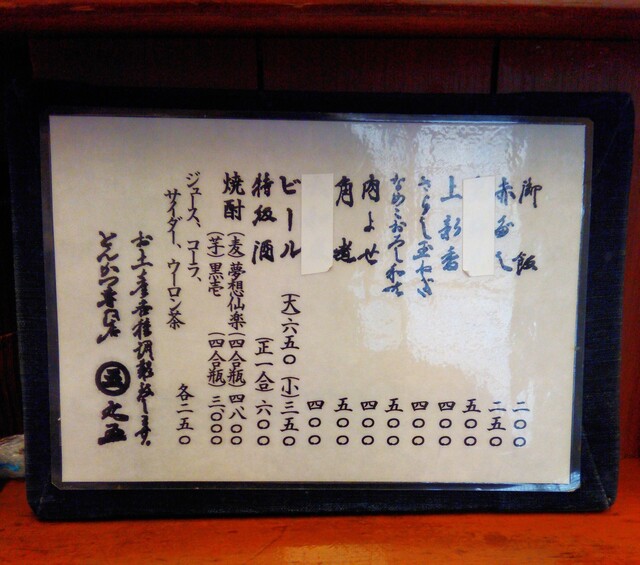 御飯 二〇〇
赤だし 二五〇
五〇〇
上新香 四〇〇
さらし玉ねぎ 四〇〇
なめこおろし和え 五〇〇
肉よせ 四〇〇
角煮 五〇〇
四〇〇
ビール (大)六五〇 (小)三五〇
特級酒 (正一合)六〇〇
焼酎 (麦)夢想仙楽(四合瓶)四八〇〇
(芋)黒壱 (四合瓶)三、〇〇〇
ジュース、コーラ、
サイダー、ウーロン茶 各二五〇
お土産各種調整致します。
とんかつ専門店 五 丸五